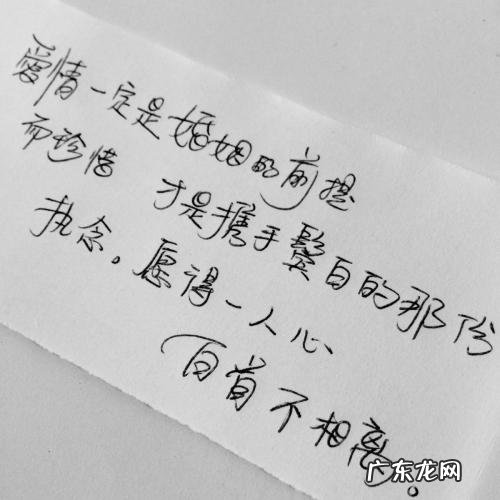 爱情一定是婚姻的前提
而珍惜 才是携手鬓白的那份
执念。愿得一人心
白首不相离。
广东龙网